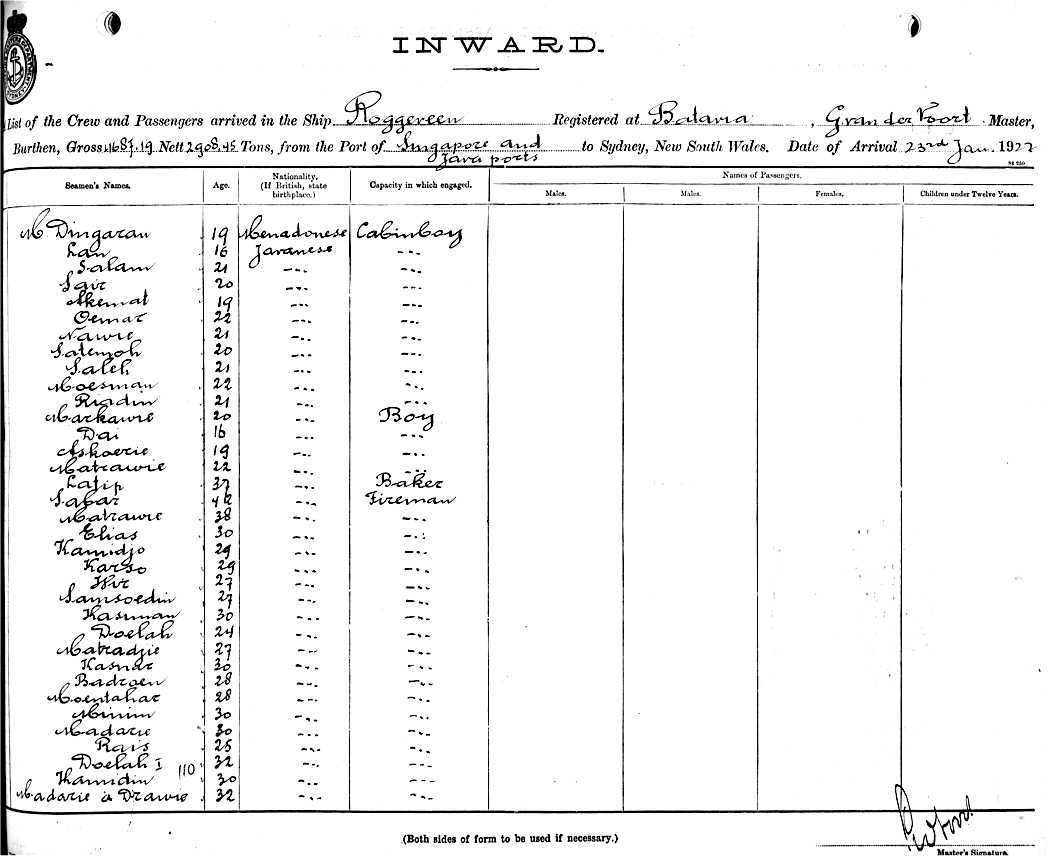 INWARD.
List of the Crew and Passengers arrived in the Ship Roggeveen Registered at Batavia, G van der Voort Master,
Burthen, Gross 4689.19 Nett 2908.45 Tons, from the Port of Singapore and Java ports to Sydney, New South Wales. Date of Arrival 23rd Jan. 1922
Seamen's Names. Age. Nationality, (If British, state birthplace.) Capacity in which engaged. Names of Passengers.
Males. Males. Females. Children under Twelve Years.
M Dingaran 19 Menadonese Cabinboy
Lan 16 Javanese -"-
Salam 21 -"- -"-
Sair 20 -"- -"-
Akemat 19 -"- -"-
Oemar 22 -"- -"-
Nawie 21 -"- -"-
Satemoh 20 -"- -"-
Saleh 21 -"- -"-
Moesman 22 -"- -"-
Riadin 21 -"- -"-
Markawie 20 -"- Boy
Dai 16 -"- -"-
Askoerie 19 -"- -"-
Matrawie 22 -"- -"-
Latip 37 -"- Baker
Sabar -"- Fireman
Matrawie 38 -"- -"-
Elias 30 -"- -"-
Kamidjo 29 -"- -"-
Karso 29 -"- -"-
27 -"- -"-
Samsoedin 27 -"- -"-
Kasiman 30 -"- -"-
Doelah 24 -"- -"-
Matradjie 27 -"- -"-
Kasnar 30 -"- -"-
Badroen 28 -"- -"-
Moentahar 28 -"- -"-
Minim 30 -"- -"-
Madarie 30 -"- -"-
Rais 25 -"- -"-
Doelah I 110 32 -"- -"-
Hamidin 30 -"- -"-
Madarie à Drawie 32 -"- -"-
(Both sides of form to be used if necessary.)
Master's Signature.